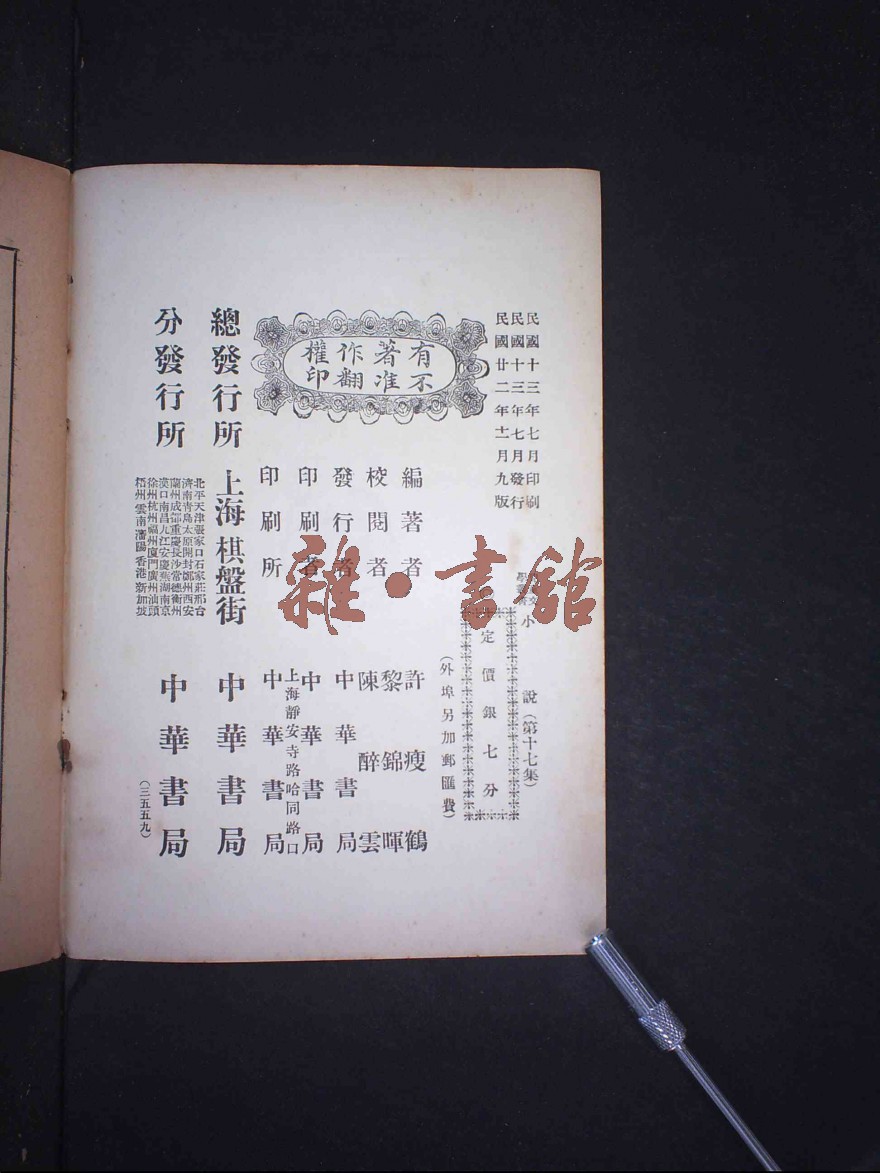 民國十三年七月印刷
民國十三年七月發行
民國廿二年十二月九版
小說(第十七集)
定價銀七分
(外埠另加郵匯費)
有著作權
不准翻印
編著者 許瘦鶴
校閱者 黎錦暉
陳醉雲
發行者 中華書局
印刷者 中華書局
上海靜安寺路哈同路口
印刷所 中華書局
總發行所 上海棋盤街 中華書局
分發行所 中華書局
北平天津張家口石家莊邢台
濟南青島太原開封鄭州西安
蘭州成都重慶長沙常德衡州
漢口南昌九江安慶蕪湖南京
徐州杭州福州廈門廣州汕頭
梧州雲南瀋陽香港新加坡
(三五五九)
雜·書館